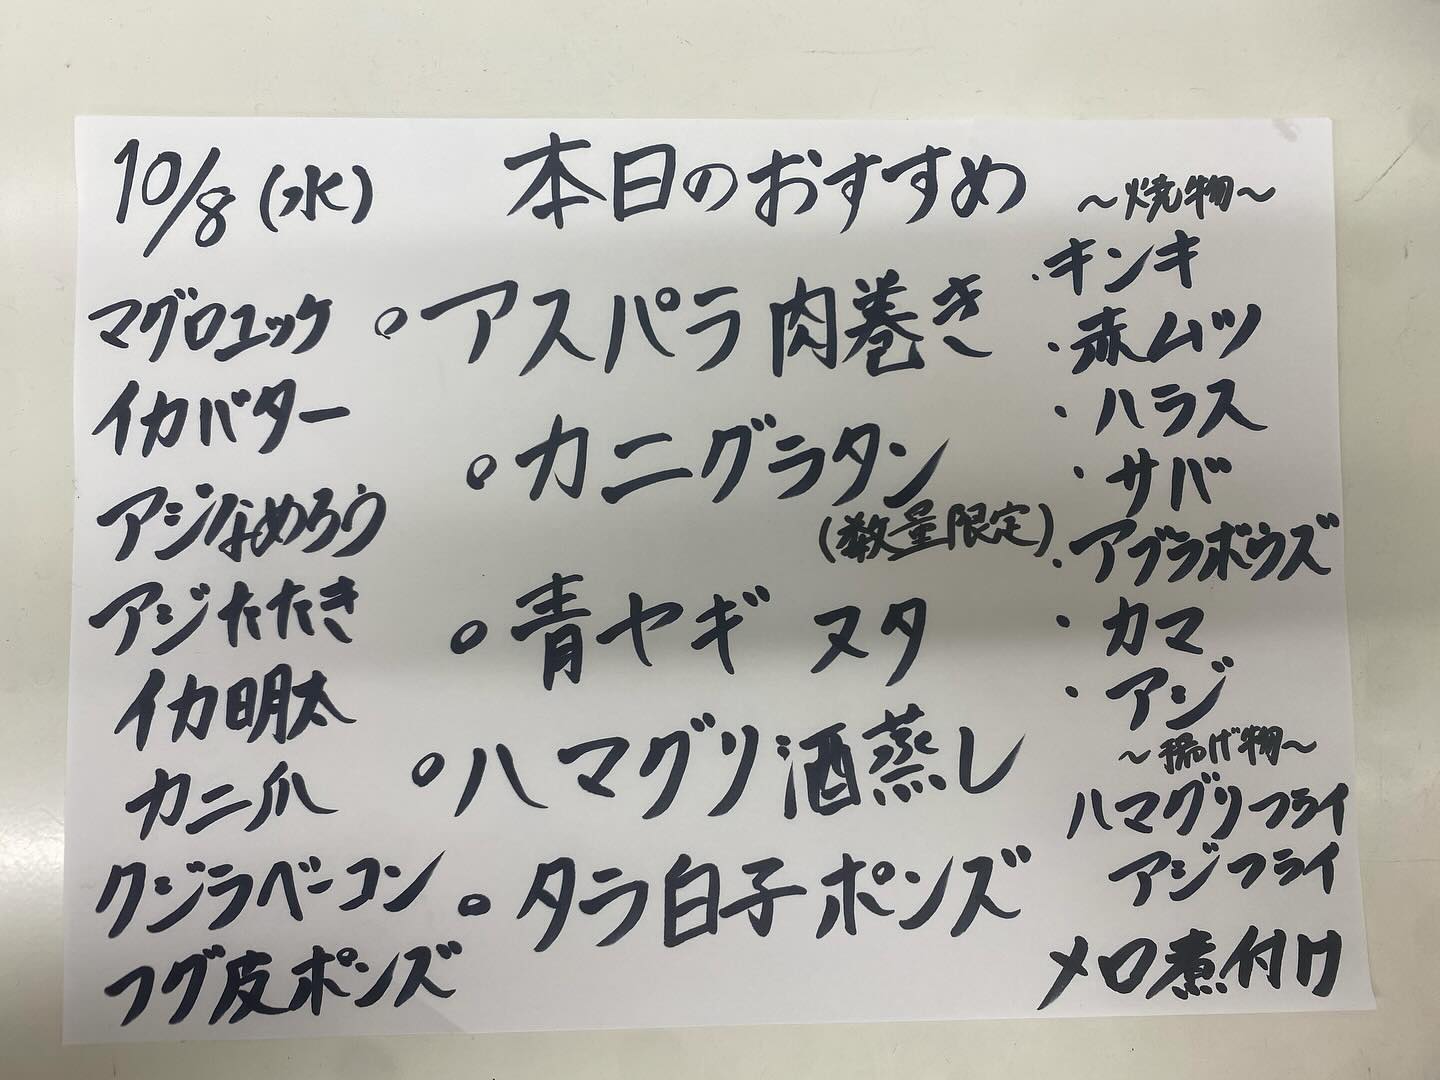 10/8(水)
本日のおすすめ
マグロユッケ
イカバター
アジなめろう
アジたたき
イカ明太
カニ爪
クジラベーコン
フグ皮ポンズ
○アスパラ肉巻き
○カニグラタン
(数量限定)
○青ヤギ ヌタ
○ハマグリ酒蒸し
○タラ白子ポンズ
～焼物～
・キンキ
・赤ムツ
・ハラス
・サバ
・アブラボウズ
・カマ
・アジ
～揚げ物～
ハマグリフライ
アジフライ
メロ煮付け